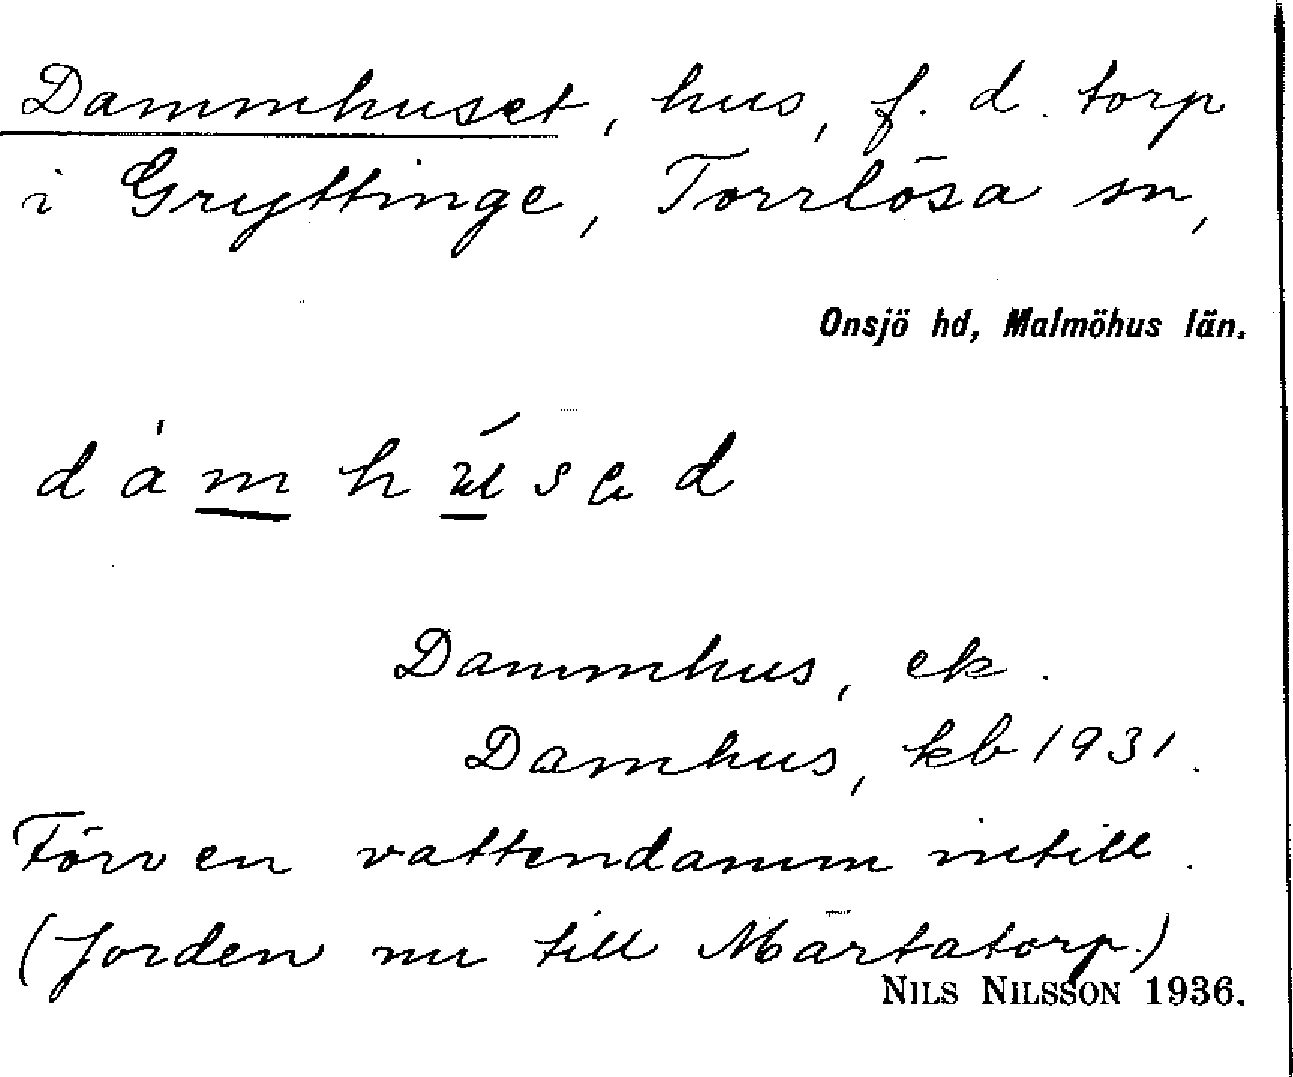 Dammhuset, hus, f. d. torp
i Gryttinge, Torrlösa sn,
Onsjö hd, Malmöhus län.
Dammhus, ek.
Damhus, kb 1931.
Förr en vattendamm intill.
(Jorden nu till Märtatorp.)
NILS NILSSON 1936.